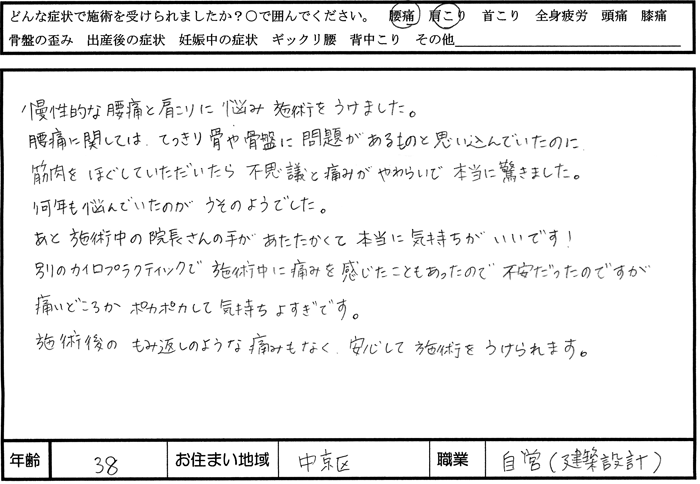 どんな症状で施術を受けられましたか？○で囲んでください。 腰痛 肩こり 首こり 全身疲労 頭痛 膝痛
骨盤の歪み 出産後の症状 妊娠中の症状 ギックリ腰 背中こり その他
慢性的な腰痛と肩こりに悩み施術をうけました。
腰痛に関しては、てっきり骨や骨盤に問題があるものと思い込んでいたのに
筋肉をほぐしていただいたら不思議と痛みがやわらいで本当に驚きました。
何年も悩んでいたのがうそのようでした。
あと施術中の院長さんの手があたたかくて本当に気持ちがいいです！
別のカイロプラクティックで施術中に痛みを感じたこともあったので不安だったのですが
痛いどころかポカポカして気持ちよすぎです。
施術後のもみ返しのような痛みもなく、安心して施術をうけられます。
年齢 38 お住まい地域 中京区 職業 自営(建築設計)